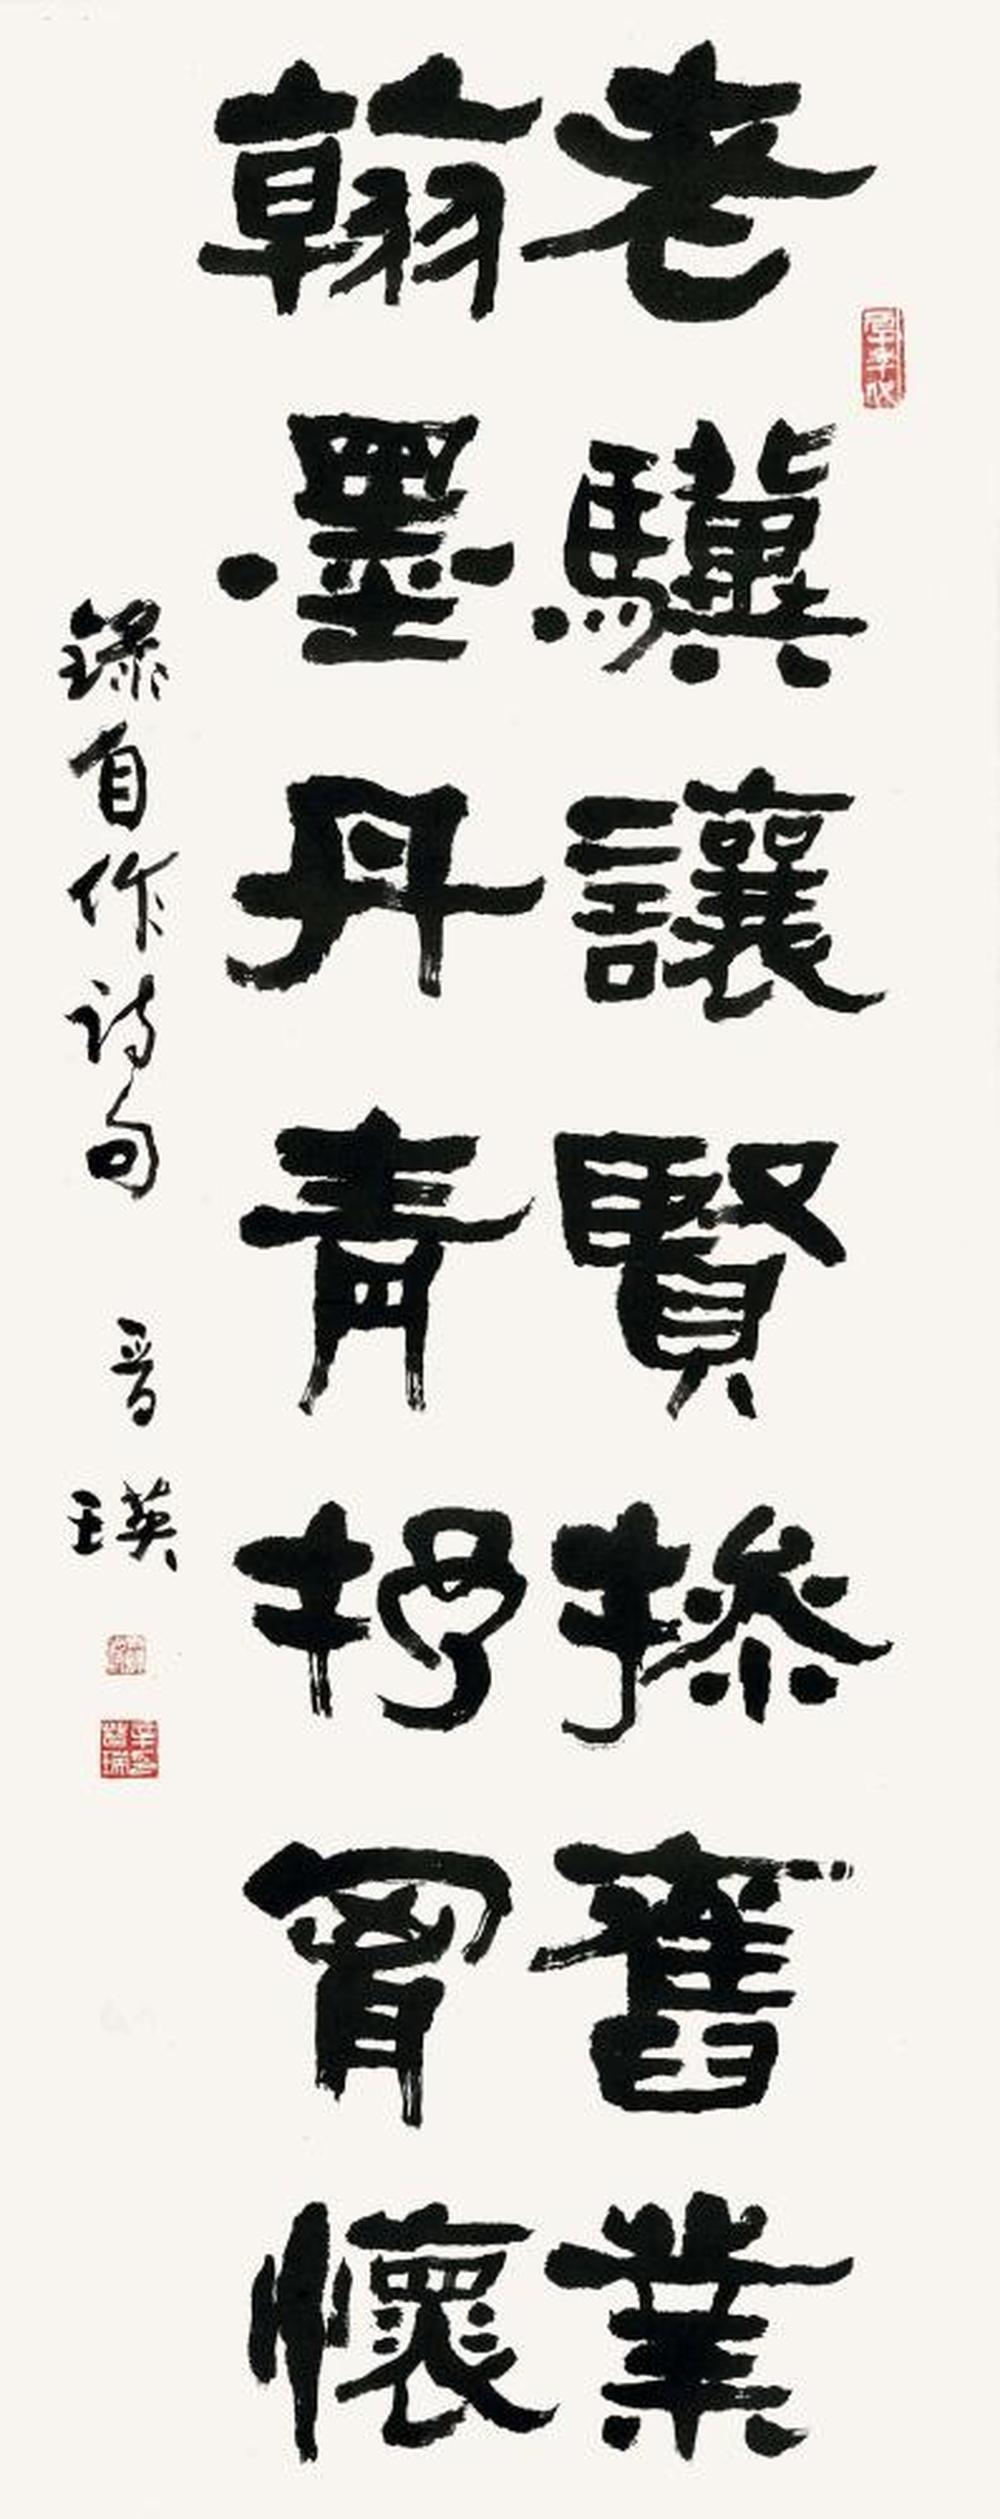 老驥讓賢操舊業
翰墨丹青抒胷懷
錄自作詩句 晋瑛